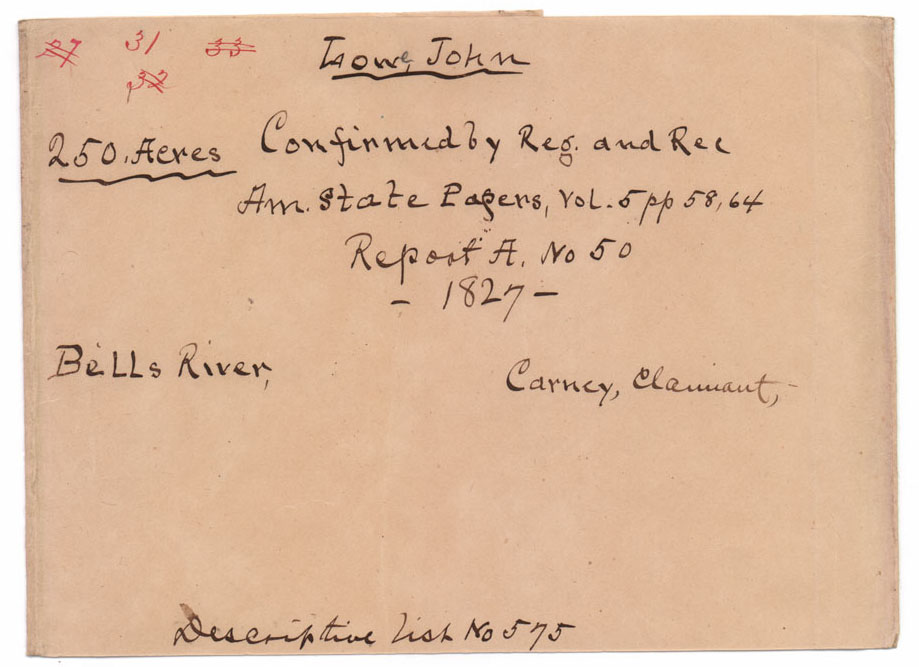 27 31 33
32
Lowe, John
250. Acres Confirmed by Reg. and Rec
Am. State Papers, Vol. 5 pp 58, 64
Report A. No 50
- 1827 -
Bells River,
Carney, Claimant, -
Descriptive list No 575